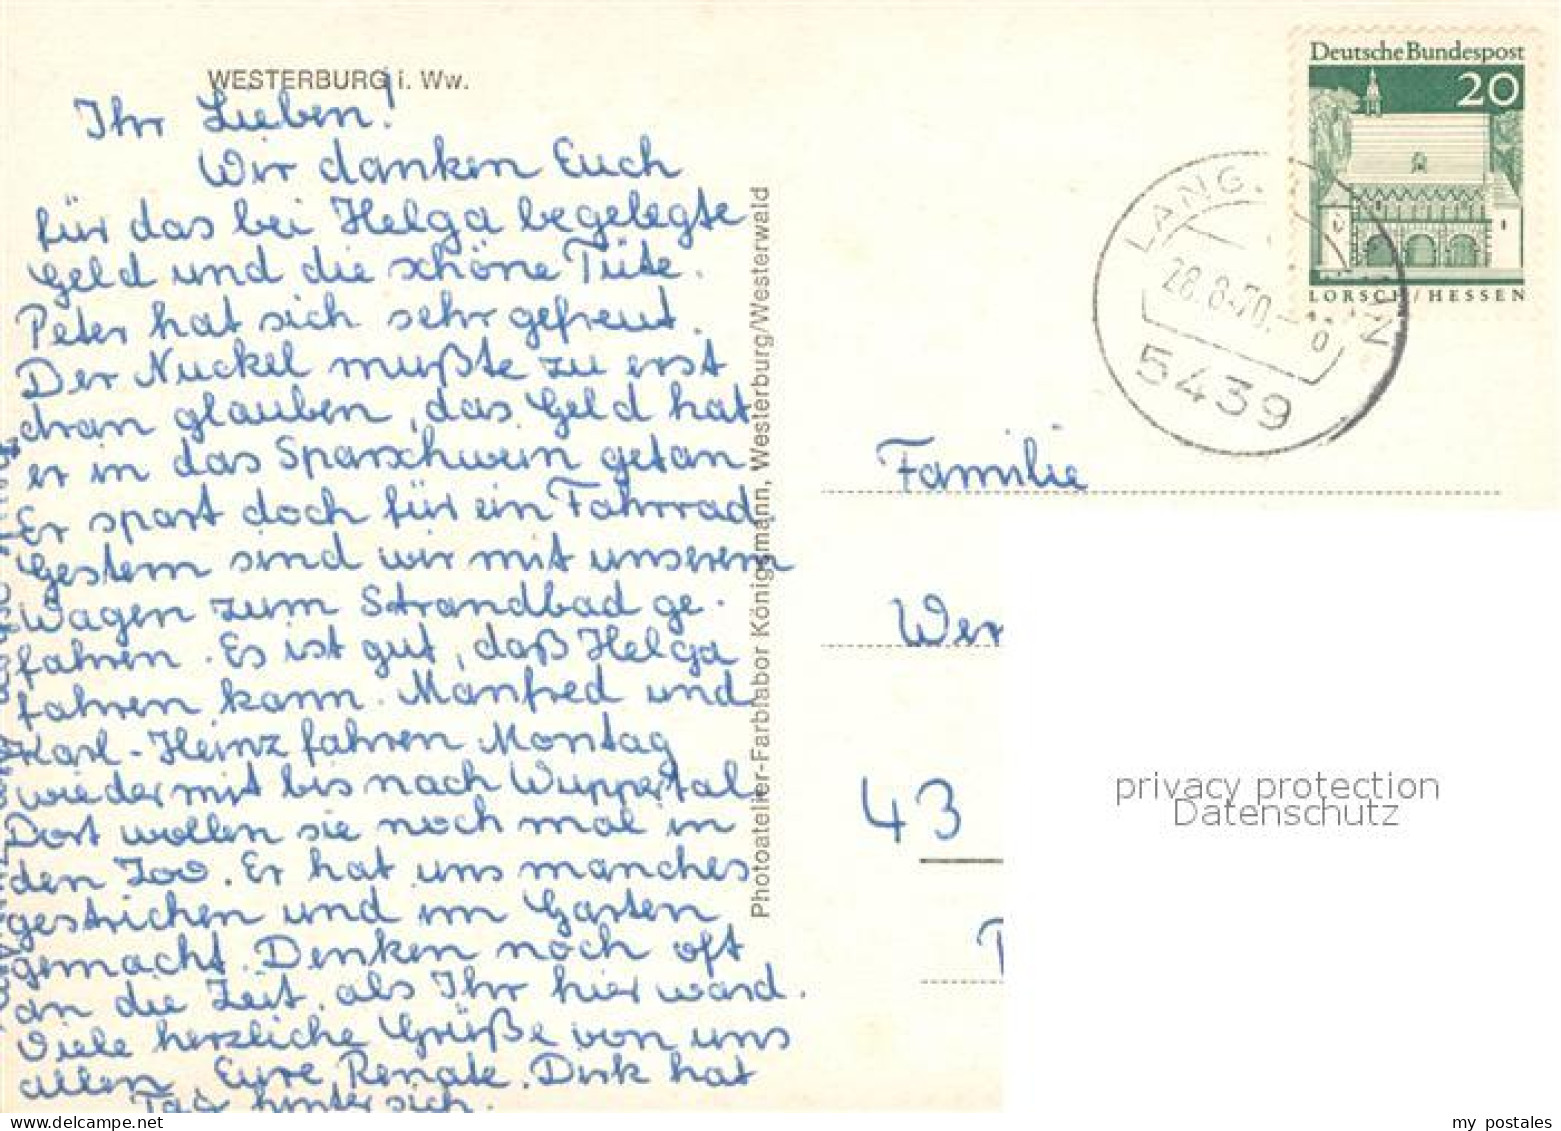 WESTERBURG i. Ww.
Ihr Lieben!
Wir danken Euch
für das bei Helga begelegte
Geld und die schöne Tüte.
Peter hat sich sehr gefreut.
Der Nuckel mußte zu erst
dran glauben, das Geld hat
er in das Sparschwein getan
Er spart doch für ein Fahrrad
Gestern sind wir mit unserem
Wagen zum Strandbad ge-
fahren. Es ist gut, daß Helga
fahren kann. Manfred und
Karl-Heinz fahren Montag
wieder mit bis nach Wuppertal
Dort wollen sie noch mal in
den Zoo. Er hat uns manches
gestrichen und im Garten
gemacht. Denken noch oft
an die Zeit, als Ihr hier ward.
Viele herzliche Grüße von uns
allen, Eure Renate. Dirk hat
Tag hinter sich.
Photoatelier-Farblabor Königsmann, Westerburg/Westerwald
Deutsche Bundespost
20
LORSCH/HESSEN
LANG
28.8.70.-
5439
Familie
Wer
43
privacy protection
Datenschutz
my postales